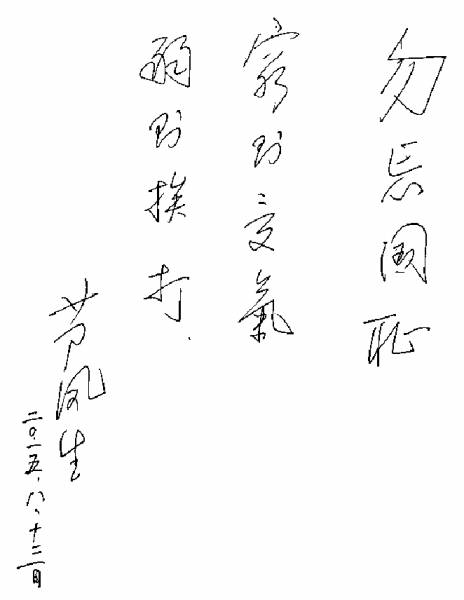 勿忘國耻
穷则受氣
弱则挨打.
凤生
二〇一五、八、十二日